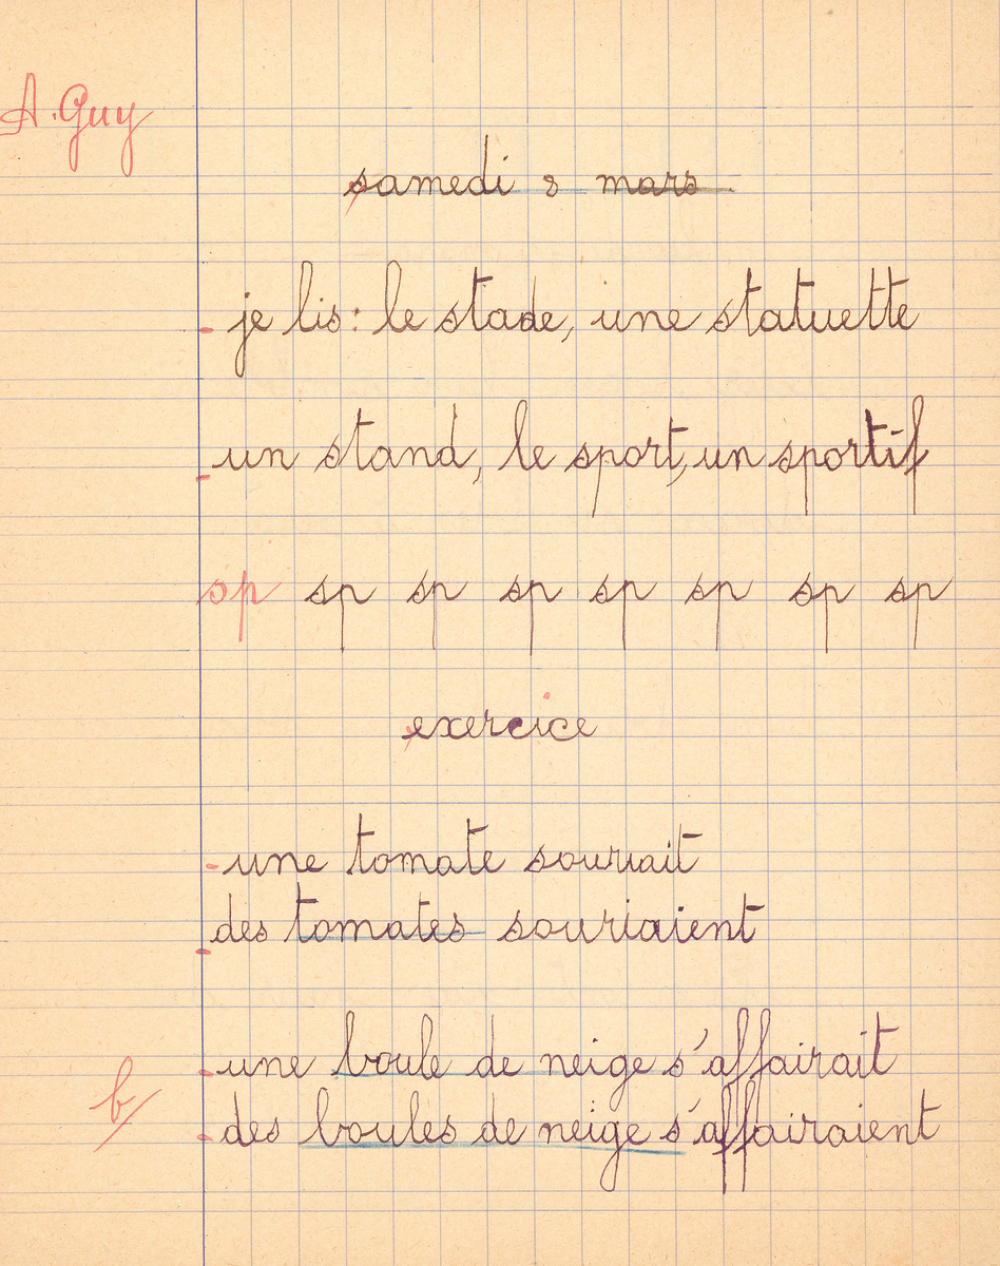 A. Guy
samedi 2 mars
je lis : le stade, une statuette
un stand, le sport, un sportif
sp sp sp sp sp sp sp sp
exercice
une tomate souriait
des tomates souriaient
une boule de neige s'affairait
b
des boules de neige s'affairaient